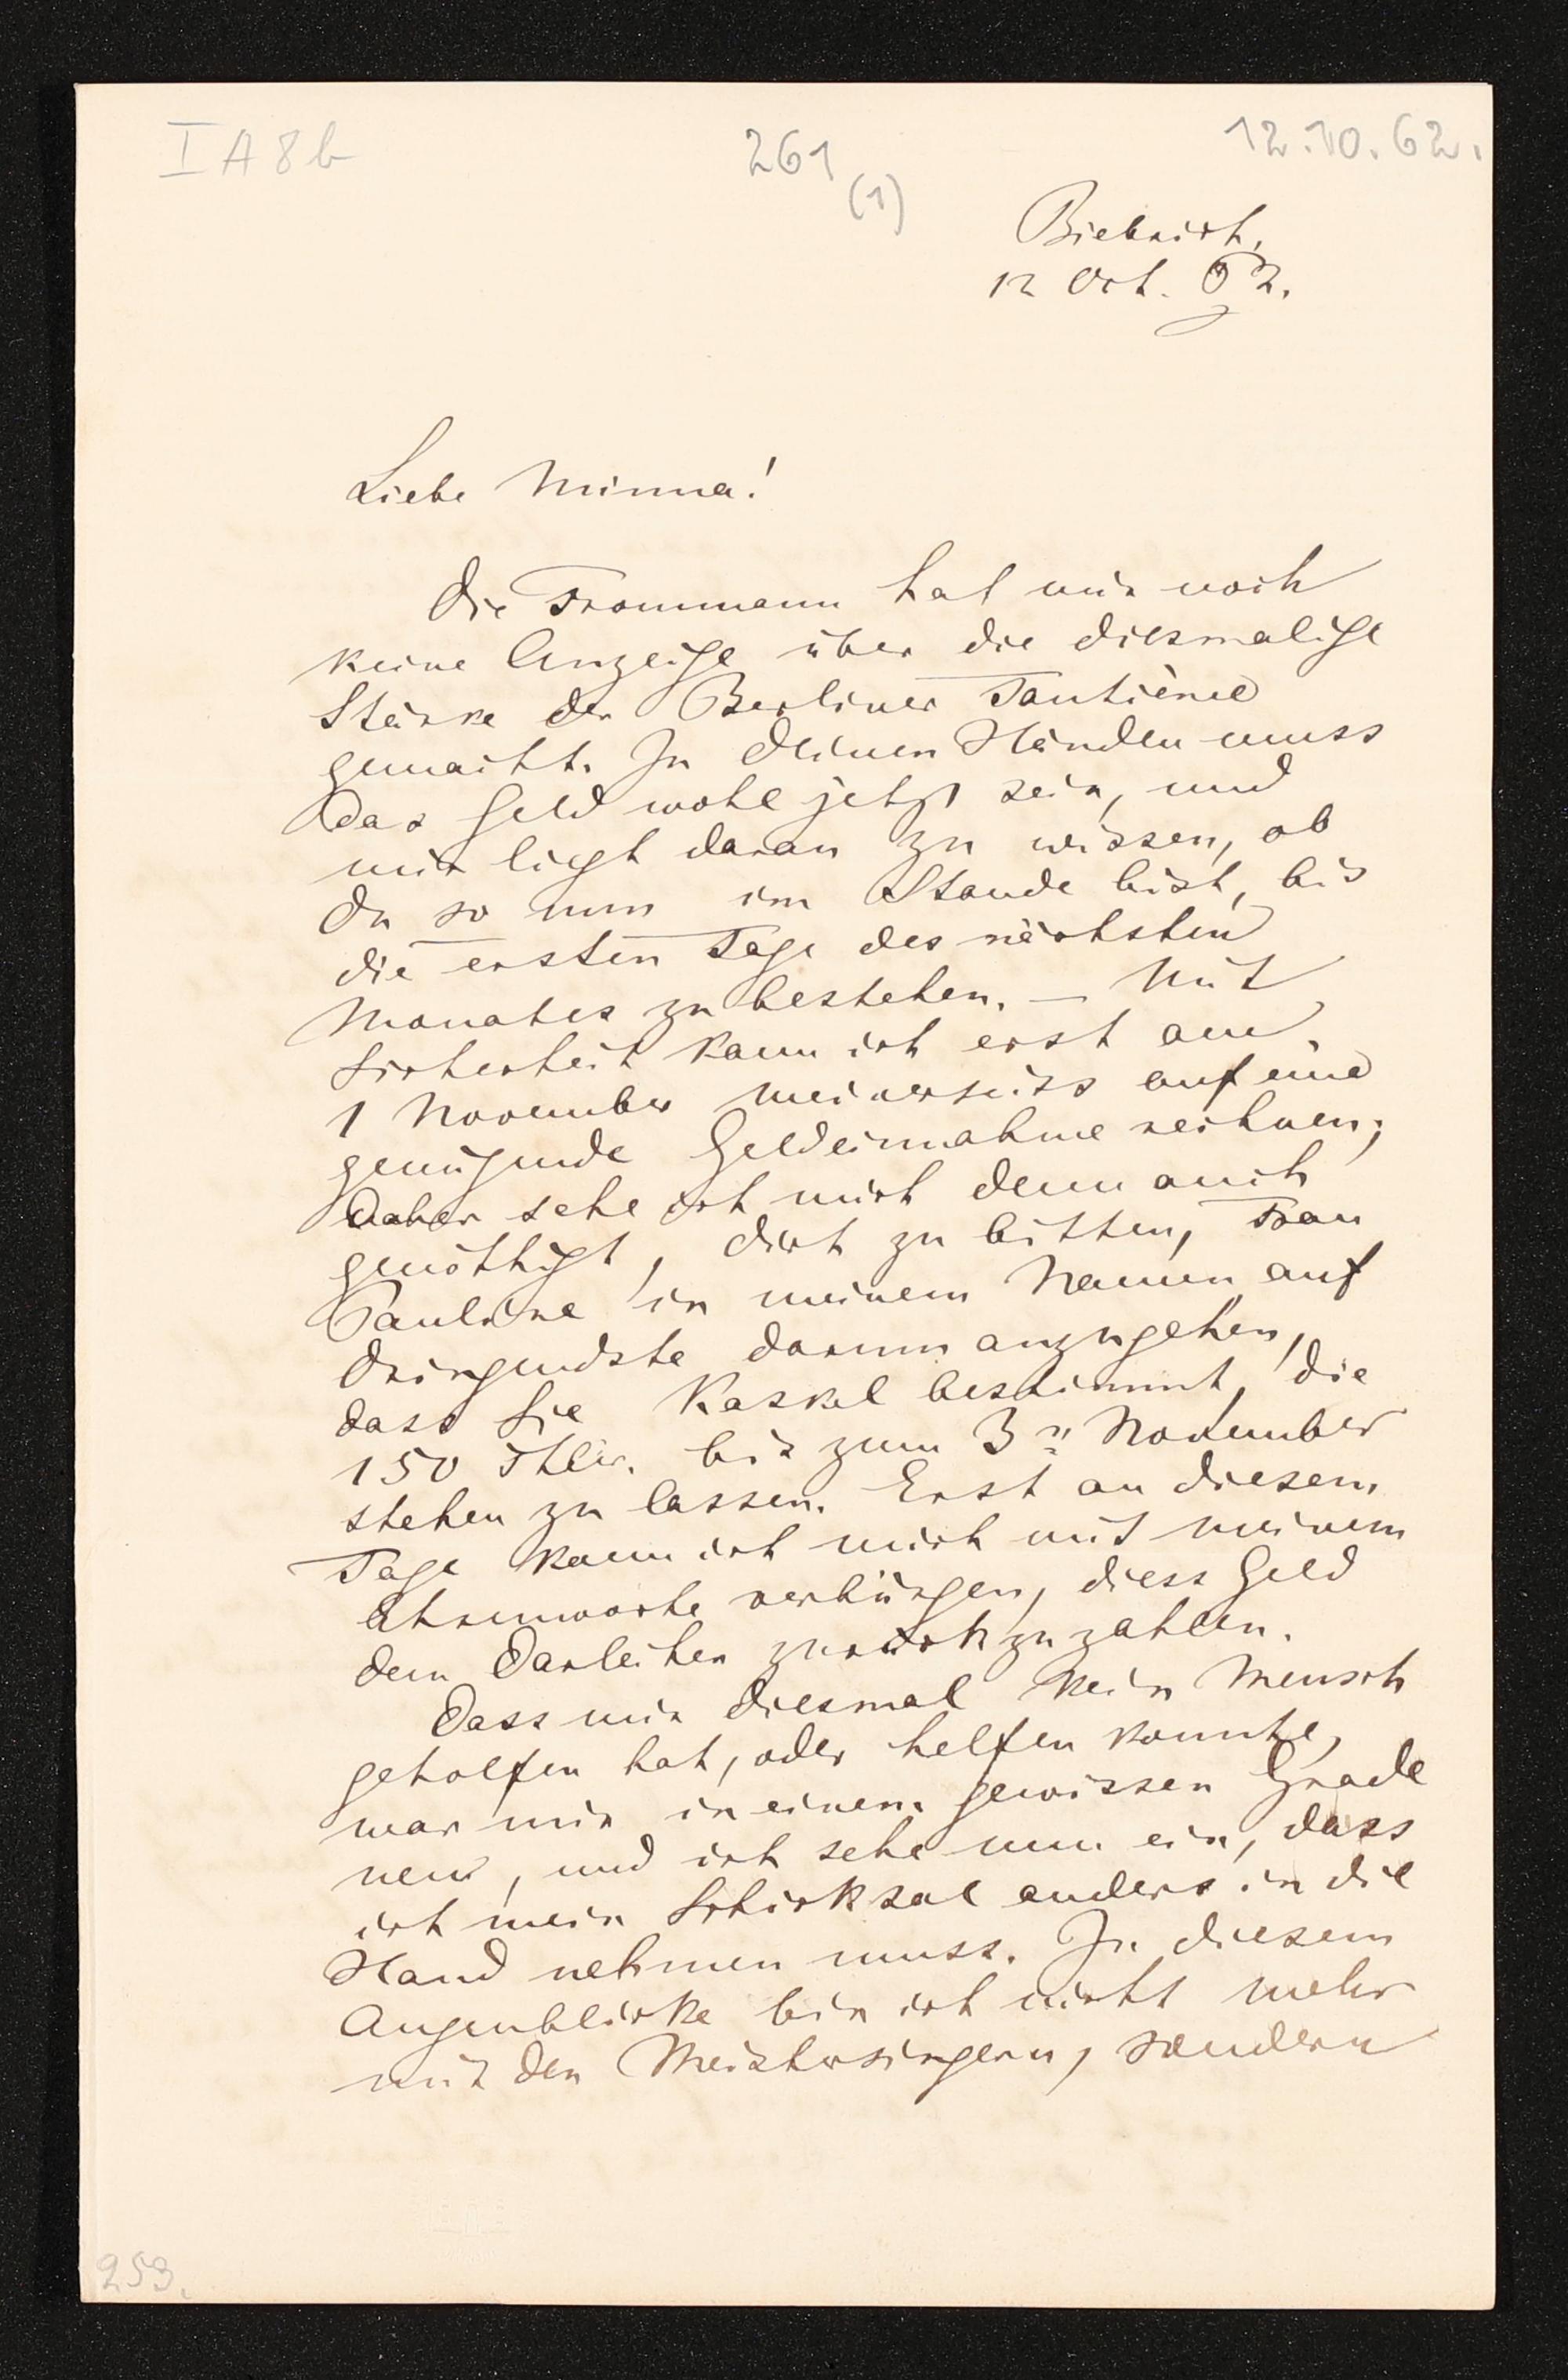 I A 8 b
261
(1)
12.10.62.
Biebrich,
12 Oct. 62.
Liebe Minna!
Die Frommann hat mir noch
keine Anzeige über die diesmalige
Stärke der Berliner Tantième
gemacht. In Deinen Händen muss
das Geld wohl jetzt sein, und
mir liegt daran zu wissen, ob
Du so nun im Stande bist, bis
die ersten Tage des nächsten
Monates zu bestehen. — Mit
Sicherheit kann ich erst am
1 November meinerseits auf eine
genügende Geldeinnahme rechnen;
daher sehe ich mich denn auch
genöthigt, Dich zu bitten, Frau
Pauline in meinem Namen auf
dringendste darum anzugehen,
dass Sie Kaskel bestimmt, die
150 Thlr. bis zum 3n November
stehen zu lassen. Erst an diesem
Tage kann ich mich mit meinem
Ehrenworte verbürgen, diess Geld
dem Darleiher zurückzuzahlen.
Dass mir diesmal kein Mensch
geholfen hat, oder helfen konnte,
war mir in einem gewissen Grade
neu, und ich sehe nun ein, dass
ich mein Schicksal anders in die
Hand nehmen muss. In diesem
Augenblicke bin ich nicht mehr
mit den Meistersingern, sondern
253.